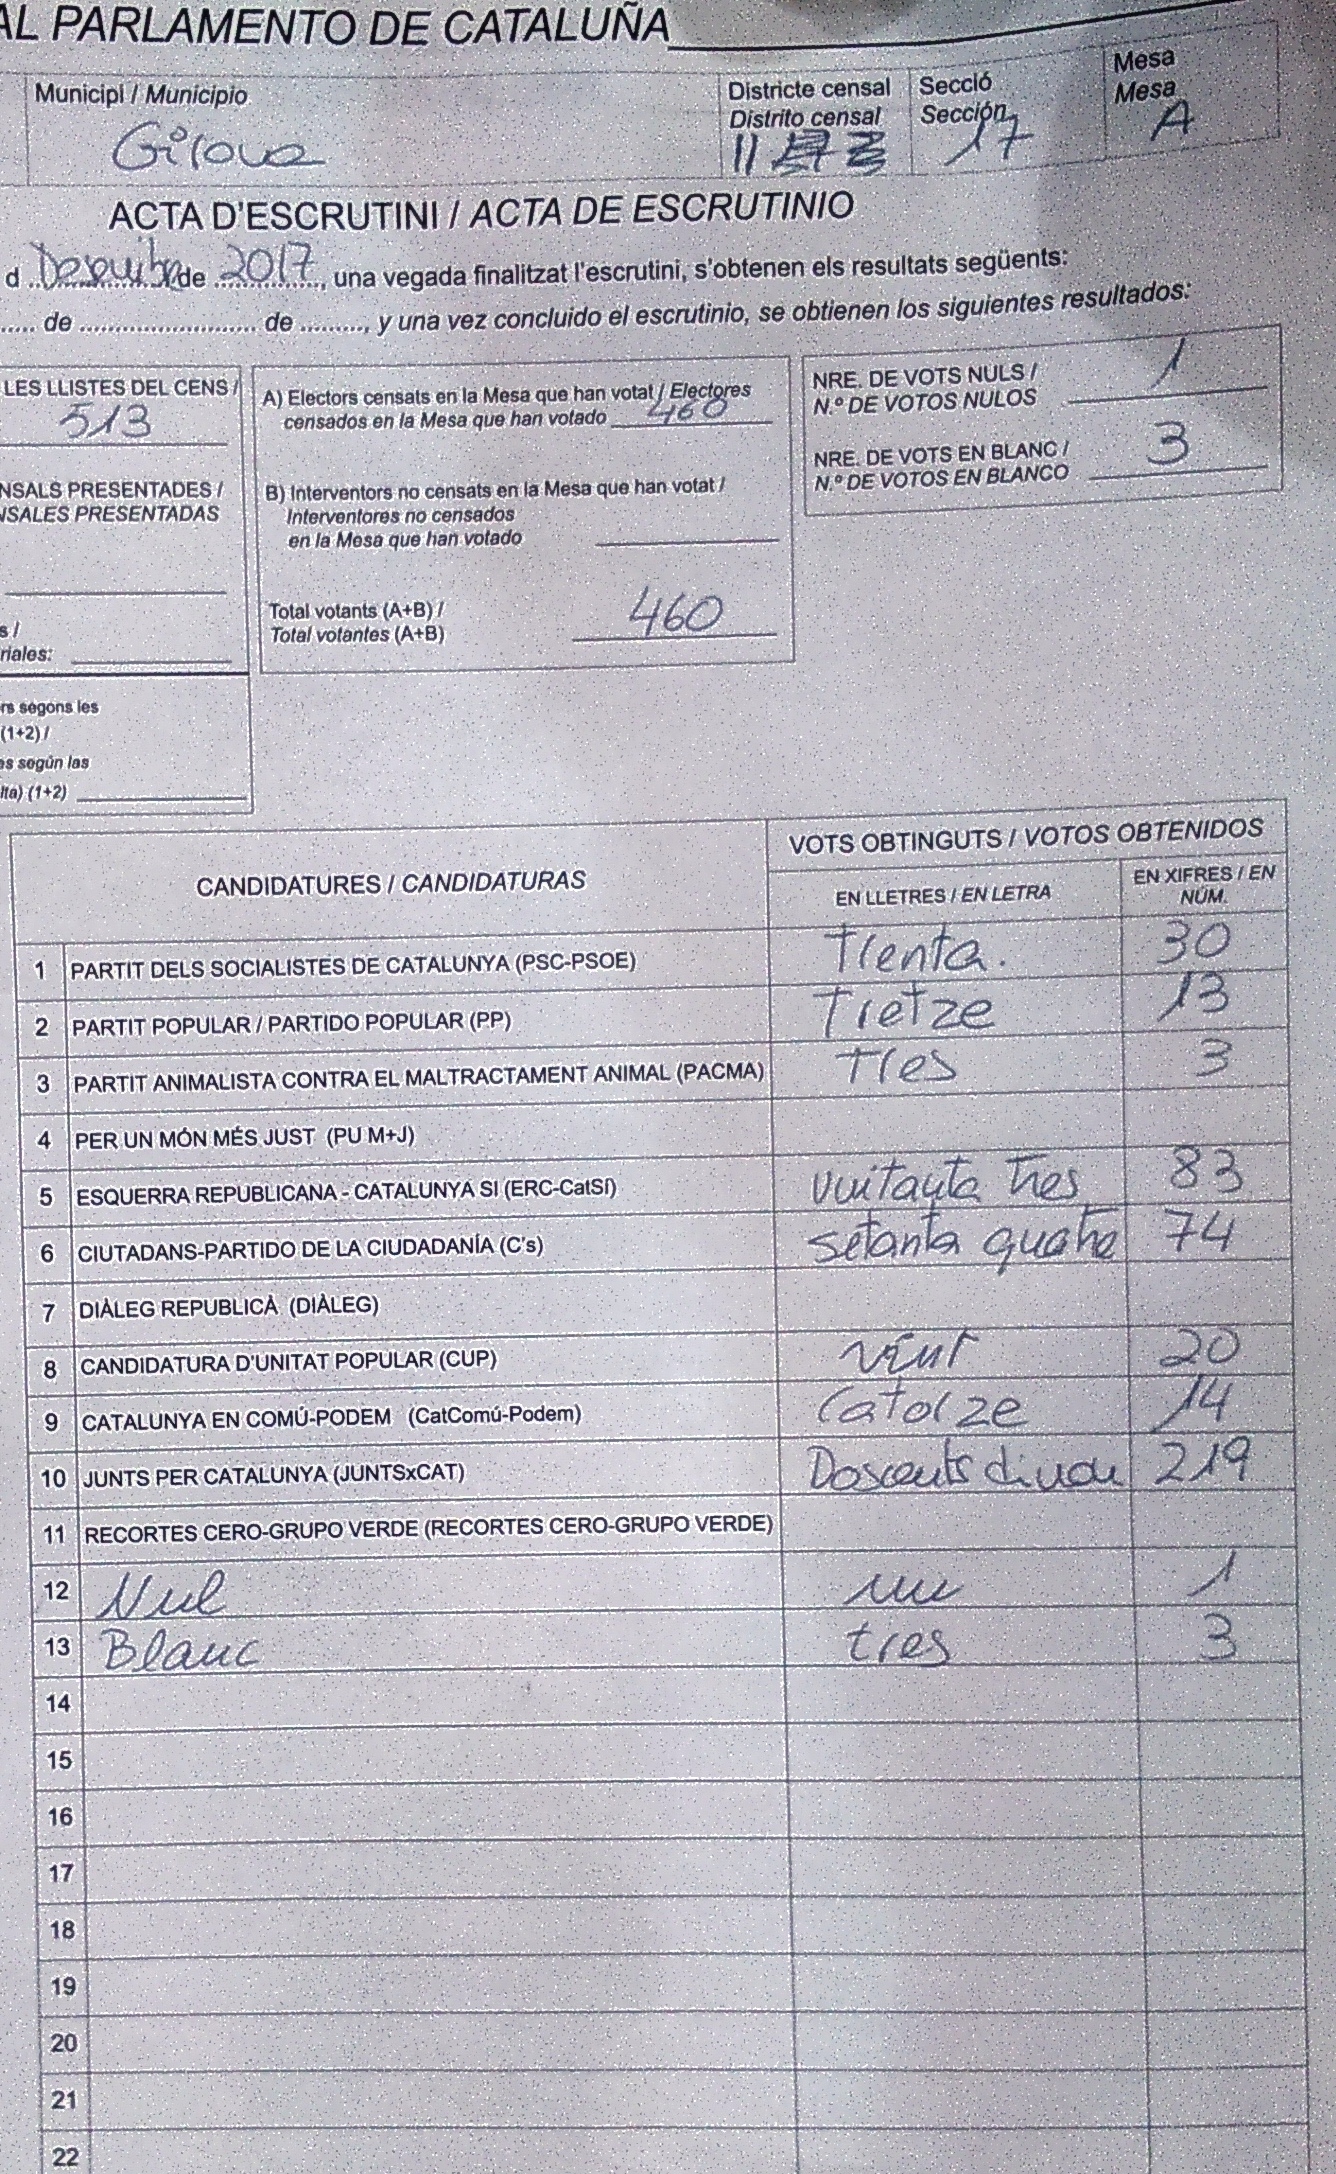 AL PARLAMENTO DE CATALUÑA
Municipi / Municipio
Girona
Districte censal
Distrito censal
II
Secció
Sección
17
Mesa
Mesa
A
ACTA D'ESCRUTINI / ACTA DE ESCRUTINIO
d Desembre de 2017, una vegada finalitzat l'escrutini, s'obtenen els resultats següents:
..... de .......................... de ........., y una vez concluido el escrutinio, se obtienen los siguientes resultados:
LES LLISTES DEL CENS /
513
NSALS PRESENTADES /
NSALES PRESENTADAS
s /
riales:
rs segons les
(1+2) /
es según las
lta) (1+2)
A) Electors censats en la Mesa que han votat / Electores
censados en la Mesa que han votado 460
B) Interventors no censats en la Mesa que han votat /
Interventores no censados
en la Mesa que han votado
Total votants (A+B) /
Total votantes (A+B)
460
NRE. DE VOTS NULS /
N.º DE VOTOS NULOS
1
NRE. DE VOTS EN BLANC /
N.º DE VOTOS EN BLANCO
3
CANDIDATURES / CANDIDATURAS
VOTS OBTINGUTS / VOTOS OBTENIDOS
EN LLETRES / EN LETRA
EN XIFRES / EN
NÚM.
1 PARTIT DELS SOCIALISTES DE CATALUNYA (PSC-PSOE) Trenta. 30
2 PARTIT POPULAR / PARTIDO POPULAR (PP) Tretze 13
3 PARTIT ANIMALISTA CONTRA EL MALTRACTAMENT ANIMAL (PACMA) Tres 3
4 PER UN MÓN MÉS JUST (PU M+J)
5 ESQUERRA REPUBLICANA - CATALUNYA SI (ERC-CatSí) vuitanta tres 83
6 CIUTADANS-PARTIDO DE LA CIUDADANÍA (C's) setanta quatre 74
7 DIÀLEG REPUBLICÀ (DIÀLEG)
8 CANDIDATURA D'UNITAT POPULAR (CUP) vint 20
9 CATALUNYA EN COMÚ-PODEM (CatComú-Podem) Catorze 14
10 JUNTS PER CATALUNYA (JUNTSxCAT) Doscents dinou 219
11 RECORTES CERO-GRUPO VERDE (RECORTES CERO-GRUPO VERDE)
12 Nul un 1
13 Blanc tres 3
14
15
16
17
18
19
20
21
22